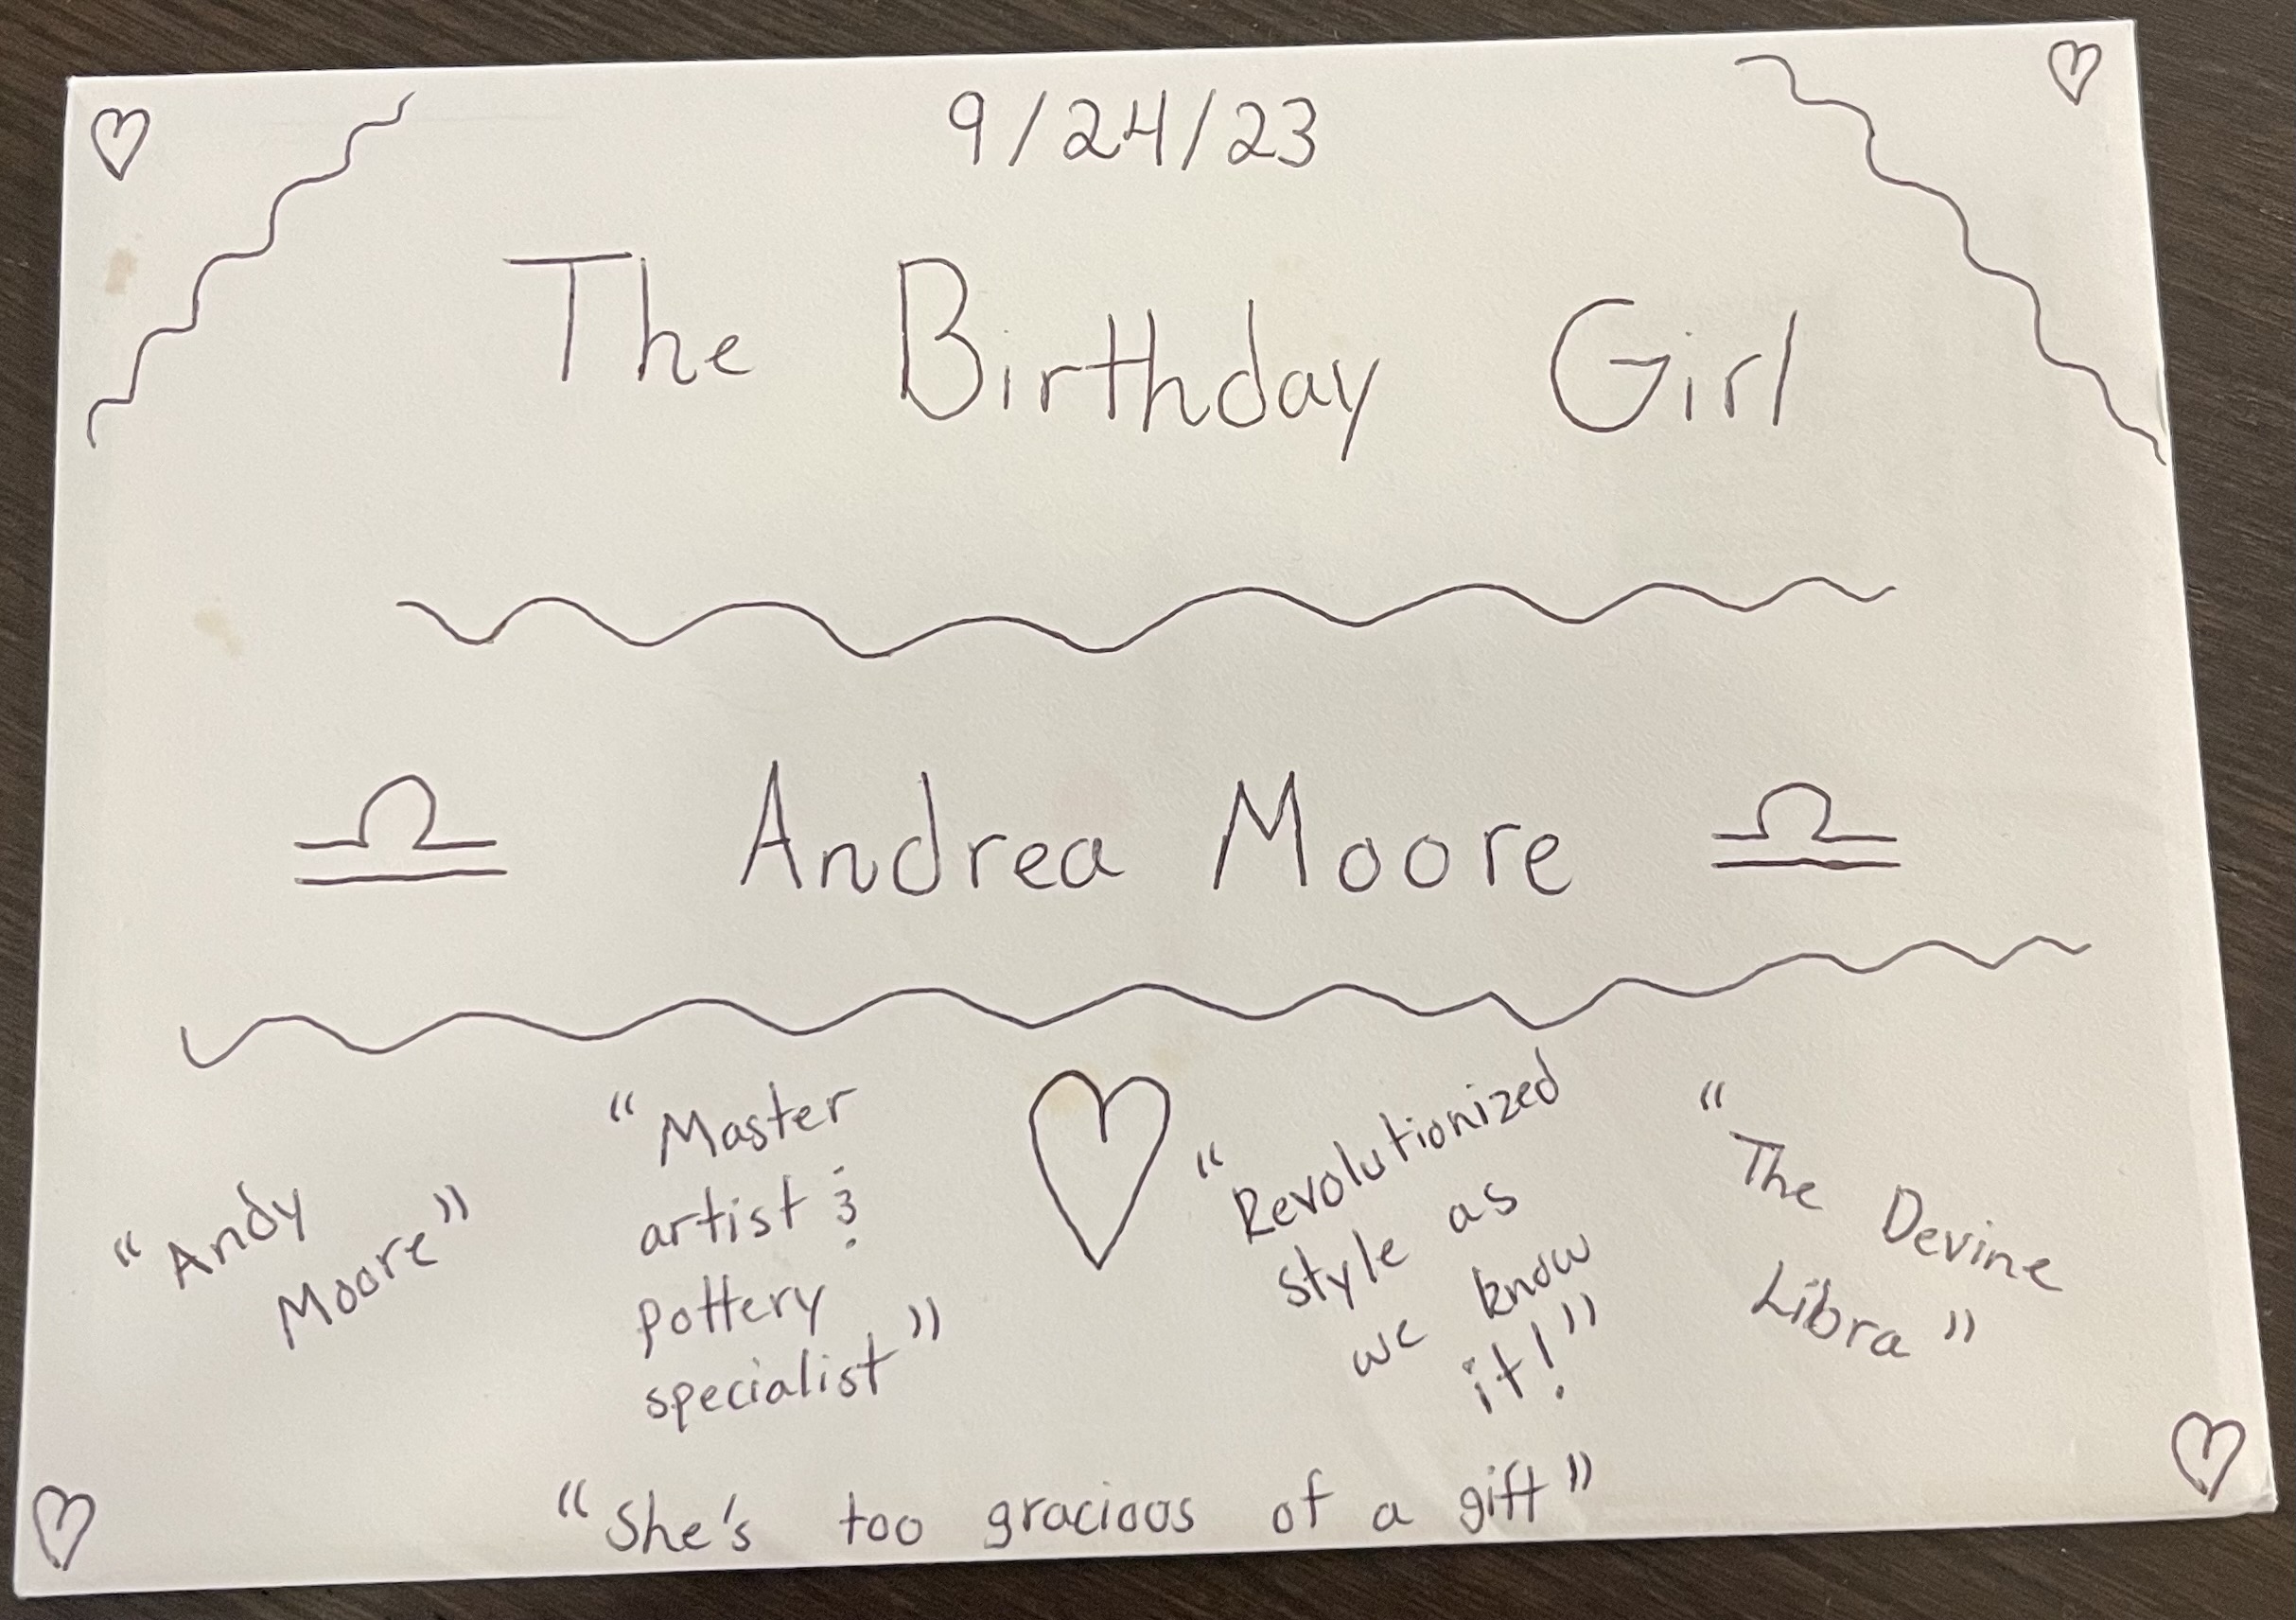 9/24/23
The Birthday Girl
♎ Andrea Moore ♎
"Andy
Moore"
"Master
artist &
pottery
specialist"
"Revolutionized
style as
we know
it!"
"The Devine
Libra"
"She's too gracious of a gift"